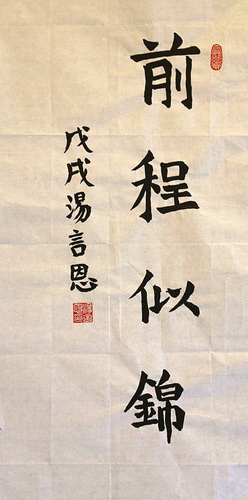 前程似錦
戊戌湯言恩